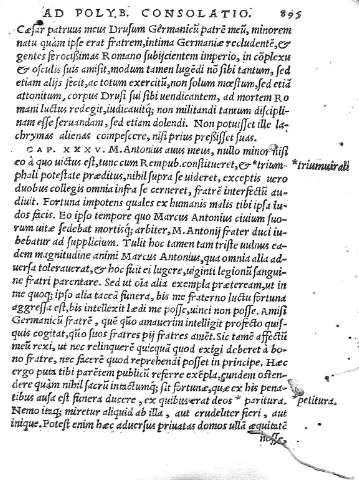 AD POLYB. CONSOLATIO. 895
Cæsar patruus meus Drusum Germanicũ patrẽ meũ, minorem
natu quàm ipse erat fratrem, intima Germaniæ recludentẽ, &
gentes ferocissimas Romano subijcientem imperio, in cõplexu
& osculis suis amisit, modum tamen lugẽdi nõ sibi tantum, sed
etiam alijs fecit, ac totum exercitũ, non solum mœstum, sed etiã
attonitum, corpus Drusi sui sibi uendicantem, ad morem Ro
mani luctus redegit, iudicauitq; non militandi tantum discipli-
nam esse seruandam, sed etiam dolendi. Non potuisset ille la-
chrymas alienas compescere, nisi prius pressisset suas.
CAP. XXXV. M. Antonius auus meus, nullo minor nisi
eo à quo uictus est, tunc cum Rempub. constitueret, & *trium- *triumuirali
phali potestate præditus, nihil supra se uideret, exceptis uero
duobus collegis omnia infra se cerneret, fratrẽ interfectũ au-
diuit. Fortuna impotens quales ex humanis malis tibi ipsa lu-
dos facis. Eo ipso tempore quo Marcus Antonius ciuium suo-
rum uitæ sedebat mortisq; arbiter, M. Antonij frater duci iu-
bebatur ad supplicium. Tulit hoc tamen tam triste uulnus ea-
dem magnitudine animi Marcus Antonius, qua omnia alia ad-
uersa tolerauerat, & hoc fuit ei lugere, uiginti legionũ sangui-
ne fratri parentare. Sed ut oĩa alia exempla præteream, ut in
me quoq; ipso alia taceã funera, bis me fraterno luctu fortuna
aggressa est, bis intellexit lædi me posse, uinci non posse. Amisi
Germanicũ fratrẽ, quẽ quõ amauerim intelligit profecto quis-
quis cogitat, quõ suos fratres pij fratres amẽt. Sic tamẽ affectũ
meũ rexi, ut nec relinquerẽ quicquã quod exigi deberet à bo-
no fratre, nec facerẽ quod reprehendi posset in principe. Hæc
ergo puta tibi parẽtem publicũ referre exẽpla, eundem osten-
dere quàm nihil sacrũ intactumq; sit fortunæ, quæ ex his pena-
tibus ausa est funera ducere, ex quibus erat deos * paritura. *petitura.
Nemo itaq; miretur aliquid ab illa, aut crudeliter fieri, aut
inique. Potest enim hæc aduersus priuatas domos ullã æquitatẽ
nosse